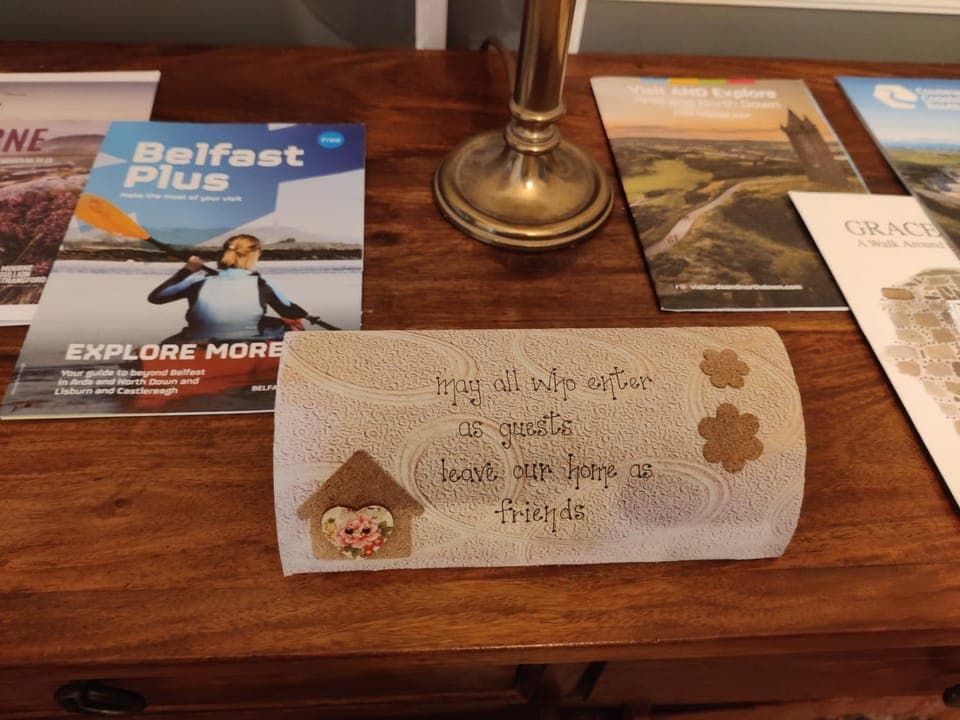 Belfast
Plus
Free
Make the most of your visit
EXPLORE MORE
Your guide to beyond Belfast
in Ards and North Down and
Lisburn and Castlereagh
Visit AND Explore
Ards and North Down
visitardsandnorthdown.com
GRACE
A Walk Around
may all who enter
as guests
leave our home as
friends